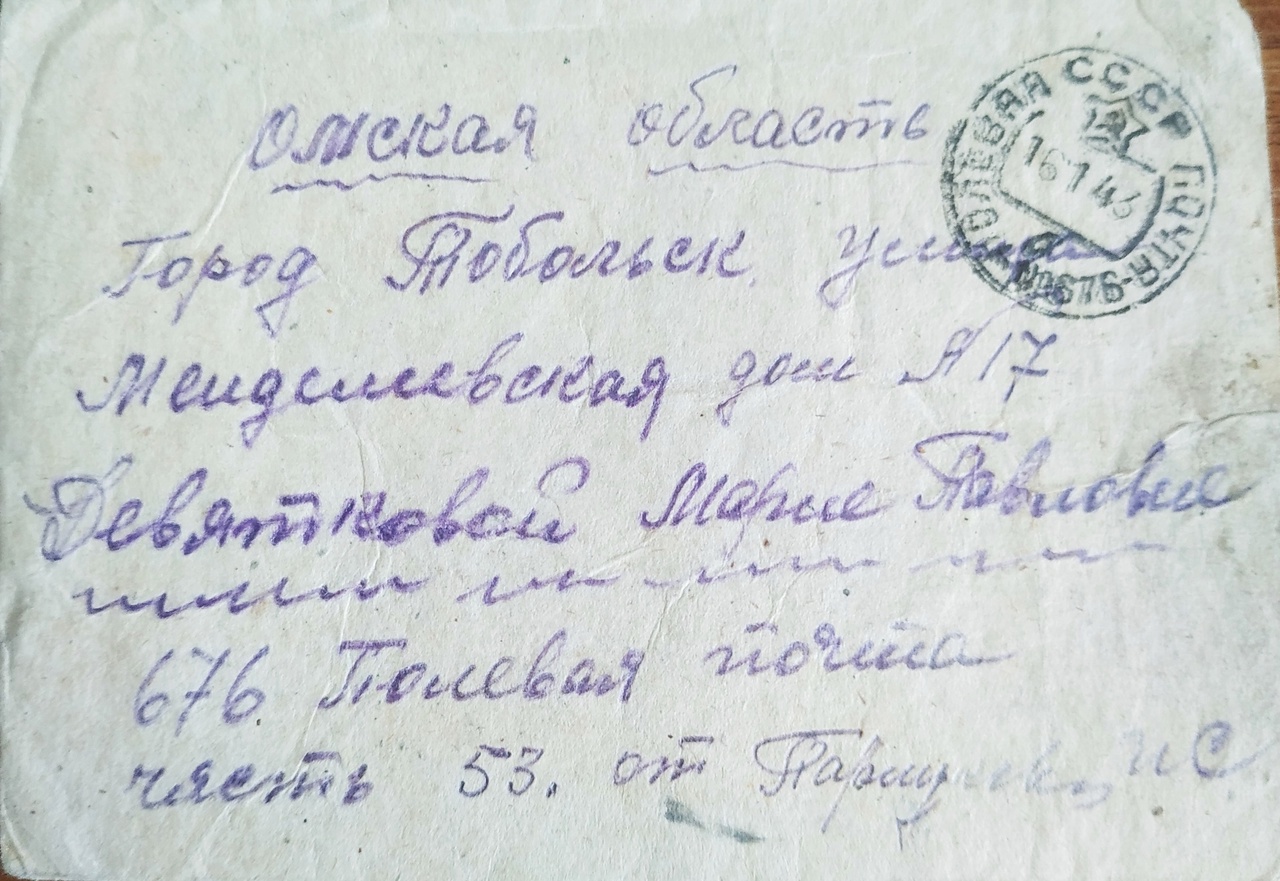 Омская область
Город Тобольск улица
Менделеевская дом № 17
Девятковой Марие Павловне
676 Полевая почта
часть 53. от И С
ПОЛЕВАЯ ПОЧТА № 676
СССР
16 1 43